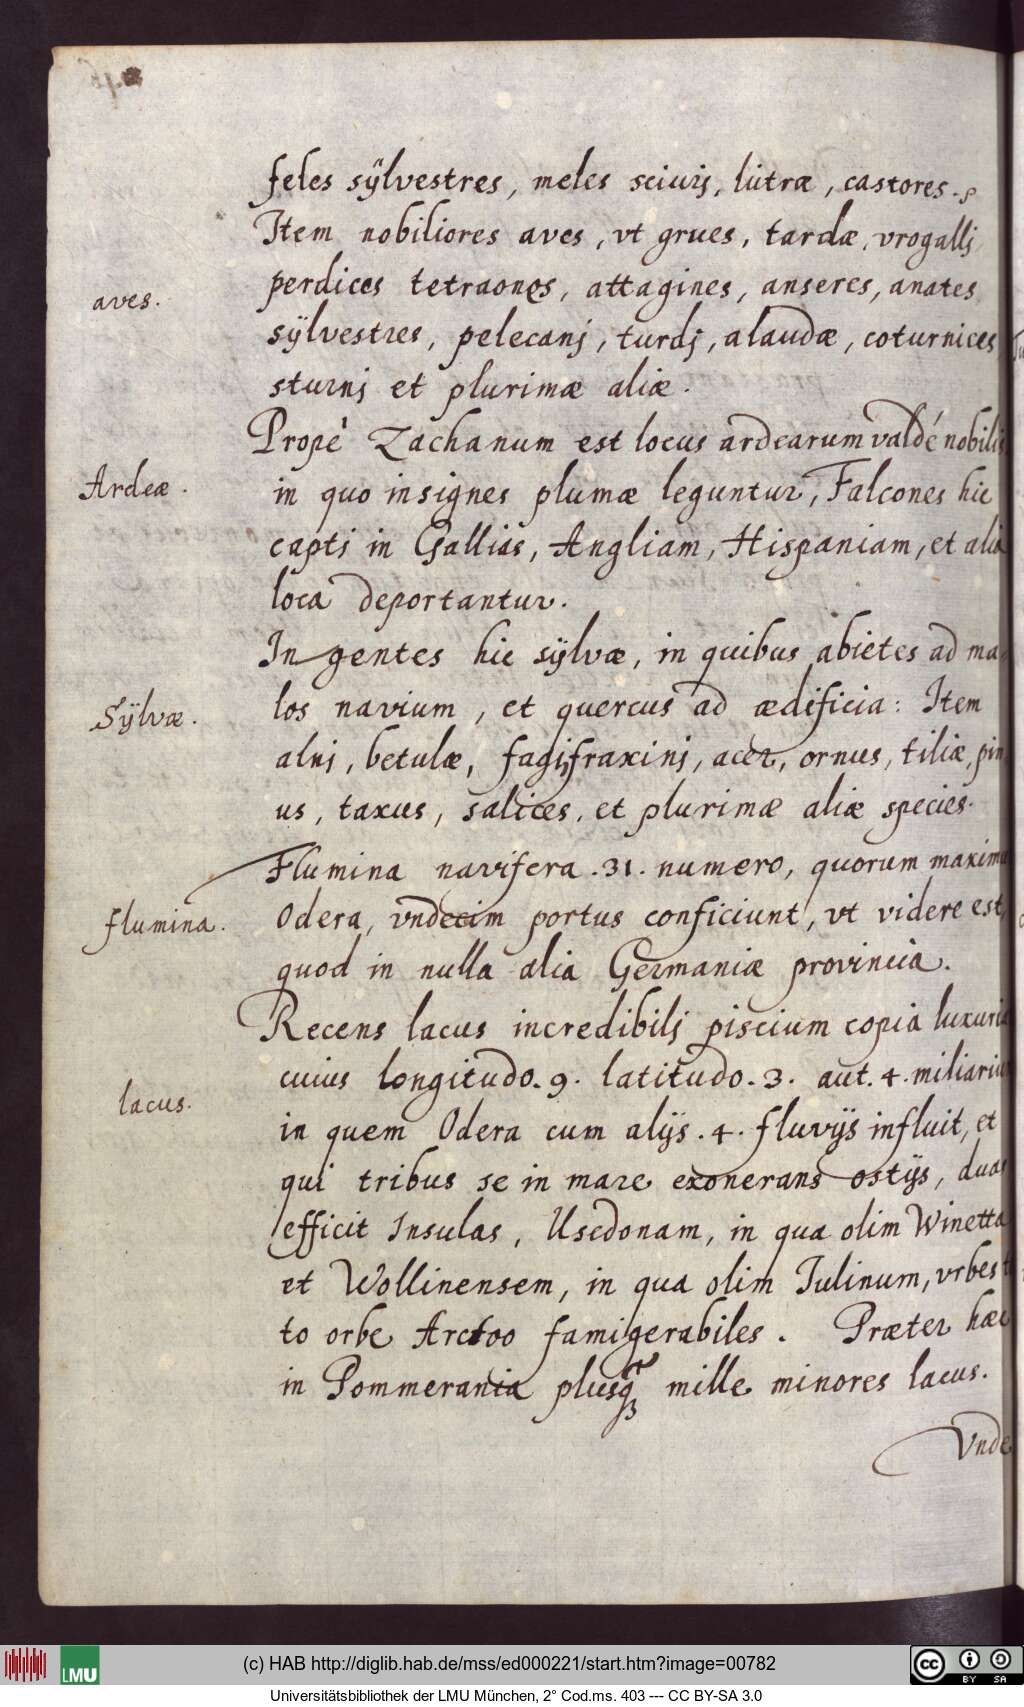 feles sÿlvestres, meles sciurj, lutræ, castores.
Item nobiliores aves, vt grues, tardæ, vrogallj
aves.
perdices tetraones, attagines, anseres, anates
sÿlvestres, pelecanj, turdj, alaudæ, coturnices
sturnj et plurimæ aliæ.
Propè Zachanum est locus ardearum valdé nobilis
Ardeæ.
in quo insignes plumæ leguntur, Falcones hic
capti in Gallias, Angliam, Hispaniam, et alia
loca deportantur.
Ingentes hic sÿlvæ, in quibus abietes ad ma-
Sÿlvæ.
los navium, et quercus ad ædificia: Item
alnj, betulæ, fagj, fraxinj, acer, ornus, tiliæ, pin
us, taxus, salices, et plurimæ aliæ species.
Flumina navifera .31. numero, quorum maxima
flumina.
Odera, vndecim portus conficiunt, vt videre est,
quod in nulla alia Germaniæ provincia.
Recens lacus incredibilj piscium copia luxuria
cuius longitudo. 9. latitudo. 3. aut. 4. miliarium
lacus.
in quem Odera cum alijs .4. fluvijs influit, et
qui tribus se in mare exonerans ostijs, duas
efficit Insulas, Usedonam, in qua olim Winetta
et Wollinensem, in qua olim Iulinum, vrbes
to orbe Arctoo famigerabiles. Præter hæc
in Pommerania plusq3 mille minores lacus.
Vnde
(c) HAB http://diglib.hab.de/mss/ed000221/start.htm?image=00782
LMU
BY SA
Universitätsbibliothek der LMU München, 2° Cod.ms. 403 --- CC BY-SA 3.0